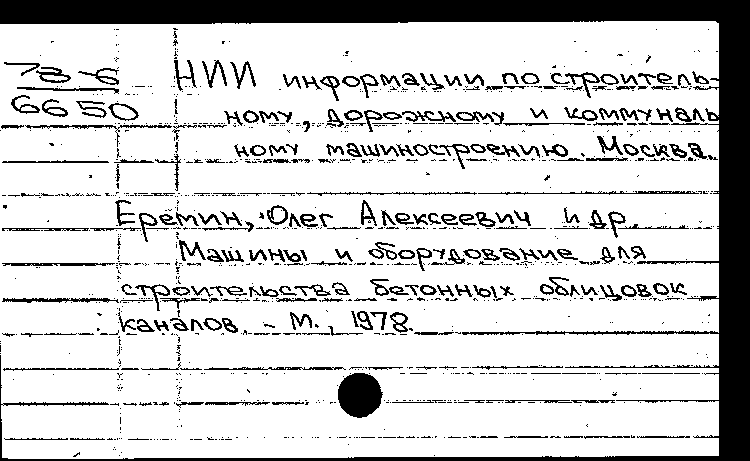 78-6
6650
НИИ информации по строитель-
ному, дорожному и коммуналь
ному машиностроению. Москва.
Еремин, Олег Алексеевич и др.
Машины и оборудование для
строительства бетонных облицовок
каналов. - М., 1978.